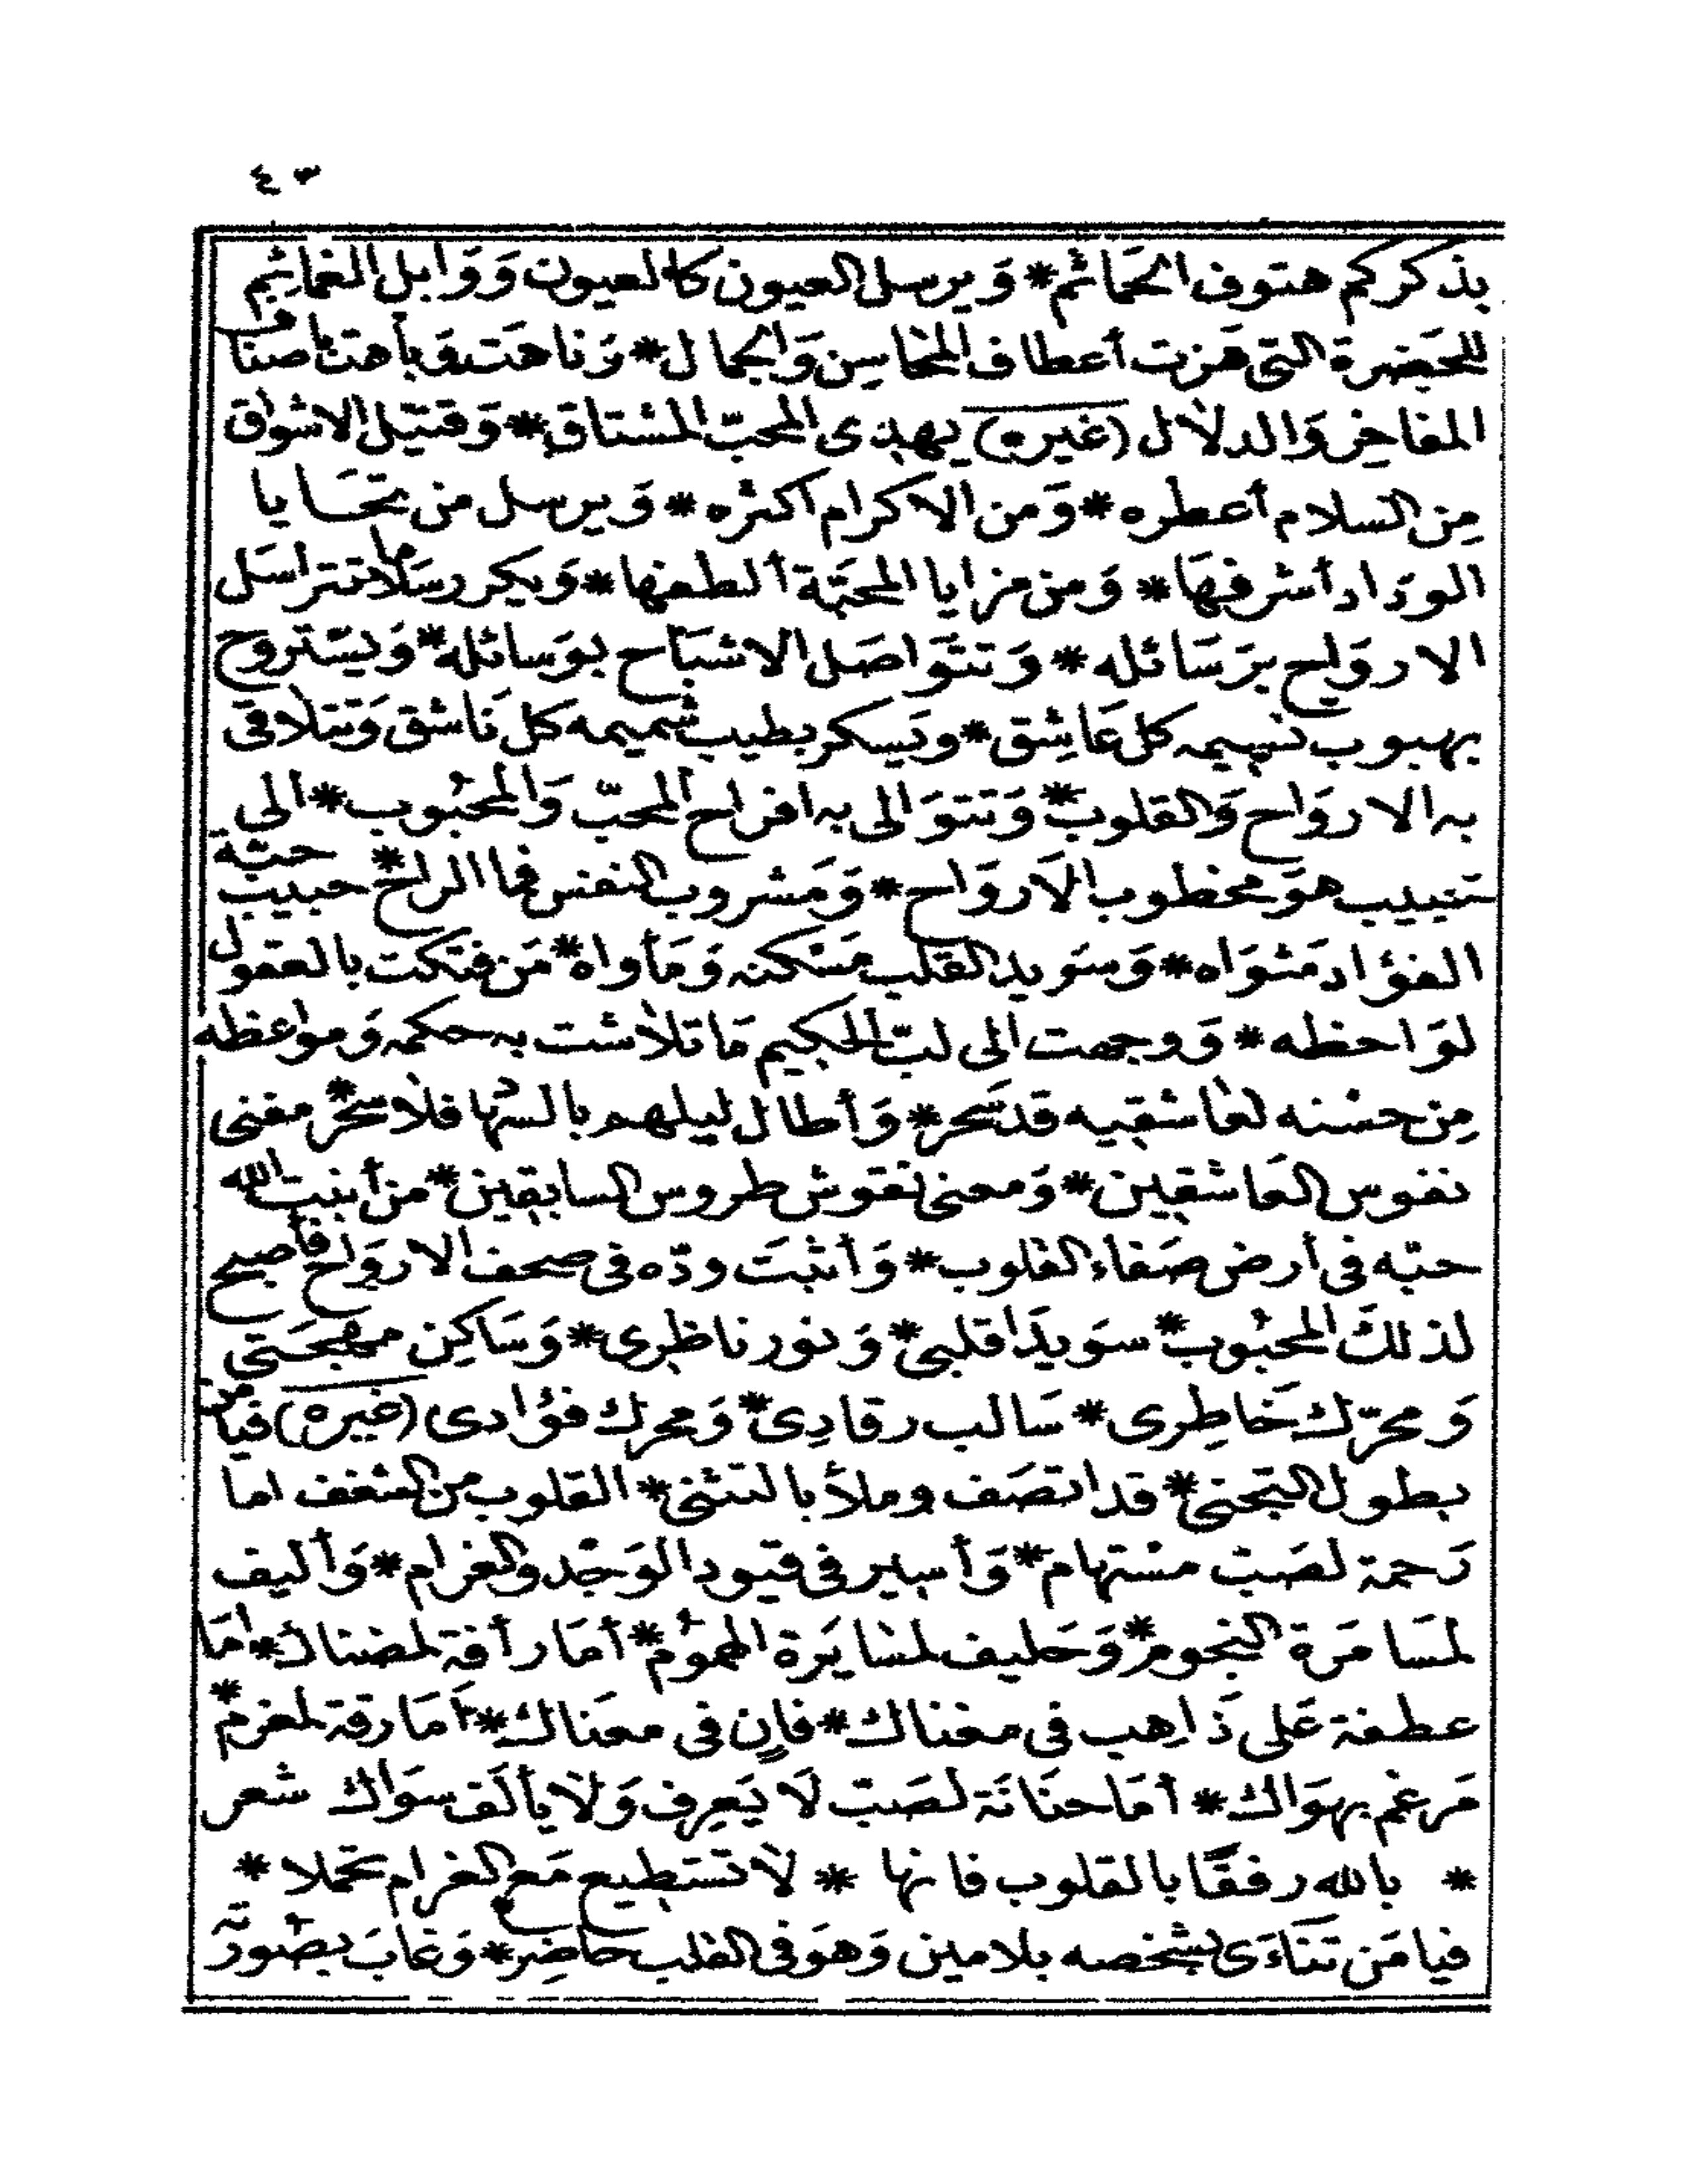 ٤٣
بذكركم هتوف الحمائم * وَيرسل العيون كالعيون وَوَابل الغمائم
للحَضرة التي هَزت أعطاف المحاسن وَالجمال * وَتاهَت وَباهت بأصناف
المفاخر وَالدلال (غيره) يهدى المحبّ المشتاق * وَقتيل الاشواق
مِن السلام أعطره * وَمن الاكرام أكثره * وَيرسل من تحَايا
الودَاد أشرفهَا * وَمن مزايا المحبَّة ألطفها * وَيكرر سَلاما تتراسَل
الاروَاح برَسَائله * وَتتوَاصَل الاشبَاح بوَسائله * وَيسَتروح
بهبوب نسيمه كل عَاشِق * ويَسكر بطيب شميمه كل نَاشق وَتتلاقى
به الاروَاح وَالقلوب * وَتتوَالى به افراح المحبّ وَالمحبُوب * الى
حبيب هوَ مخطوب الاَروَاح * وَمَشروب النفس فما الراح * حبيب حبّة
الفؤاد مَثوَاه * وَسوَيد القلب مَسْكنه وَمَأواه * مَن فتكت بالعقول
لوَاحظه * وَوجهت الى لبّ الحكيم مَا تلاشت به حكمه وَمواعظه
مِن حسْنه لعَاشقيه قد سَحر * وَأطال ليلهم بالسُّها فلا سحَر * مغنى
نفوس العَاشقين * وَمعنى نقوش طروس السابقين * من أنبت الله
حبّه في أرض صَفاء القلوب * وَأثبَت ودّه في صحف الاروَاح فأصبح
لذلكَ المحبُوب * سوَيدَا قلبي * وَنور ناظِرى * وَسَاكِن مهجَتى
وَمحرّك خَاطِرى * سَالب رقادِى * وَمحرك فؤادى (غيره) فيا من
بطول التجنى * قد اتصَف وملأ بالتثنى * القلوب من الشغف اما
رَحمة لصَبّ مسْتهام * وَأسير في قيود الوَجْد والغرام * وَأليف
لمسَامَرة النجوم * وَحَليف لمسَايَرة الهمُوم * أمَا رأفة لمضناك * أمَا
عطفة عَلى ذَاهِب في مغناك * فانٍ في معنَاك * أمَا رقة لمغرم *
مَرغم بهوَاك * أمَا حنَانَة لصَبّ لاَ يَعرف وَلا يألَف سوَاك شعر
* بالله رفقًا بالقلوب فانها * لا تستطيع مَع الغرام تحملا *
فيا مَن تنَاءَى بشخصه بلا مين وَهوَ في القلب حاضِر * وَغابَ بصُورته